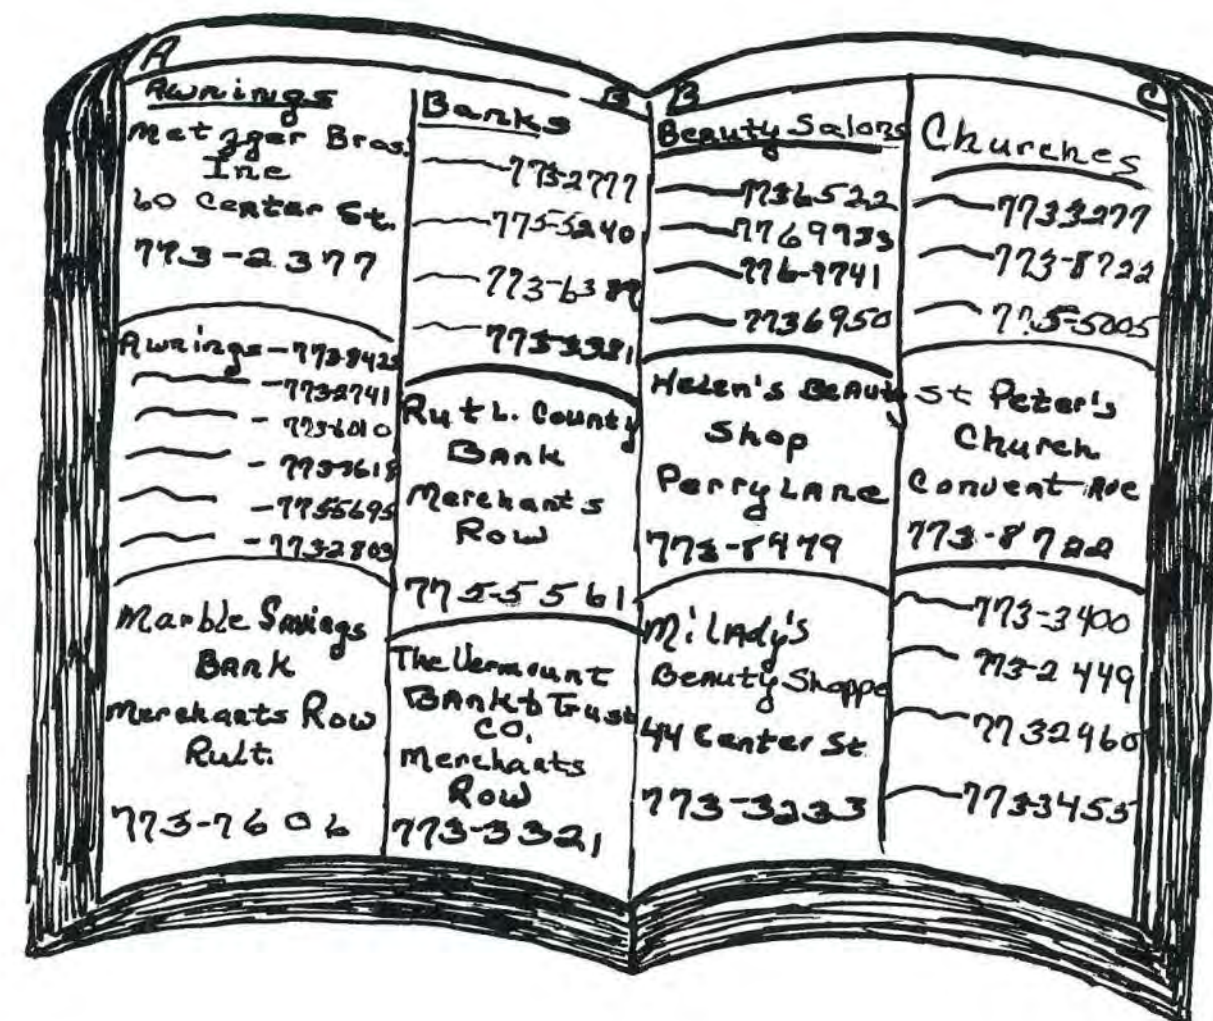 A
Awnings
Metzger Bros.
Inc
60 Center St.
773-2377
Awnings-773-8425
-7732741
-775-6010
-7733618
-7755695
-7732803
Marble Savings
Bank
Merchants Row
Rult.
773-7606
B
Banks
773-2777
775-5240
773-6389
775-3381
Rutl. County
Bank
Merchants
Row
775-5561
The Vermount
Bank & Trust
CO.
Merchants
Row
773-3321
B
Beauty Salons
7736522
7769733
776-9741
7736950
Helen's Beauty
Shop
Perry Lane
773-8479
Mi'Lady's
Beauty Shoppe
44 Center St
773-3233
C
Churches
7733277
773-8722
775-5005
St Peter's
Church
Convent Ave
773-8722
773-3400
773-2449
7732960
7733455